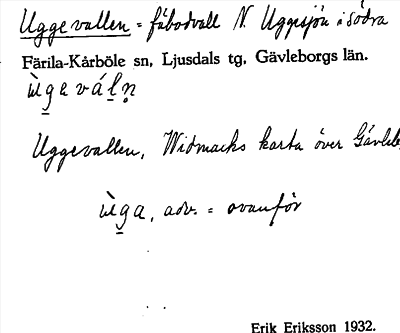 Uggevallen = fäbodvall N. Uggisjön i södra
Färila-Kårböle sn, Ljusdals tg, Gävleborgs län.
ùgeváln
Uggevallen, Widmarks karta över Gävleb.
ùga, adv. = ovanför
Erik Eriksson 1932.